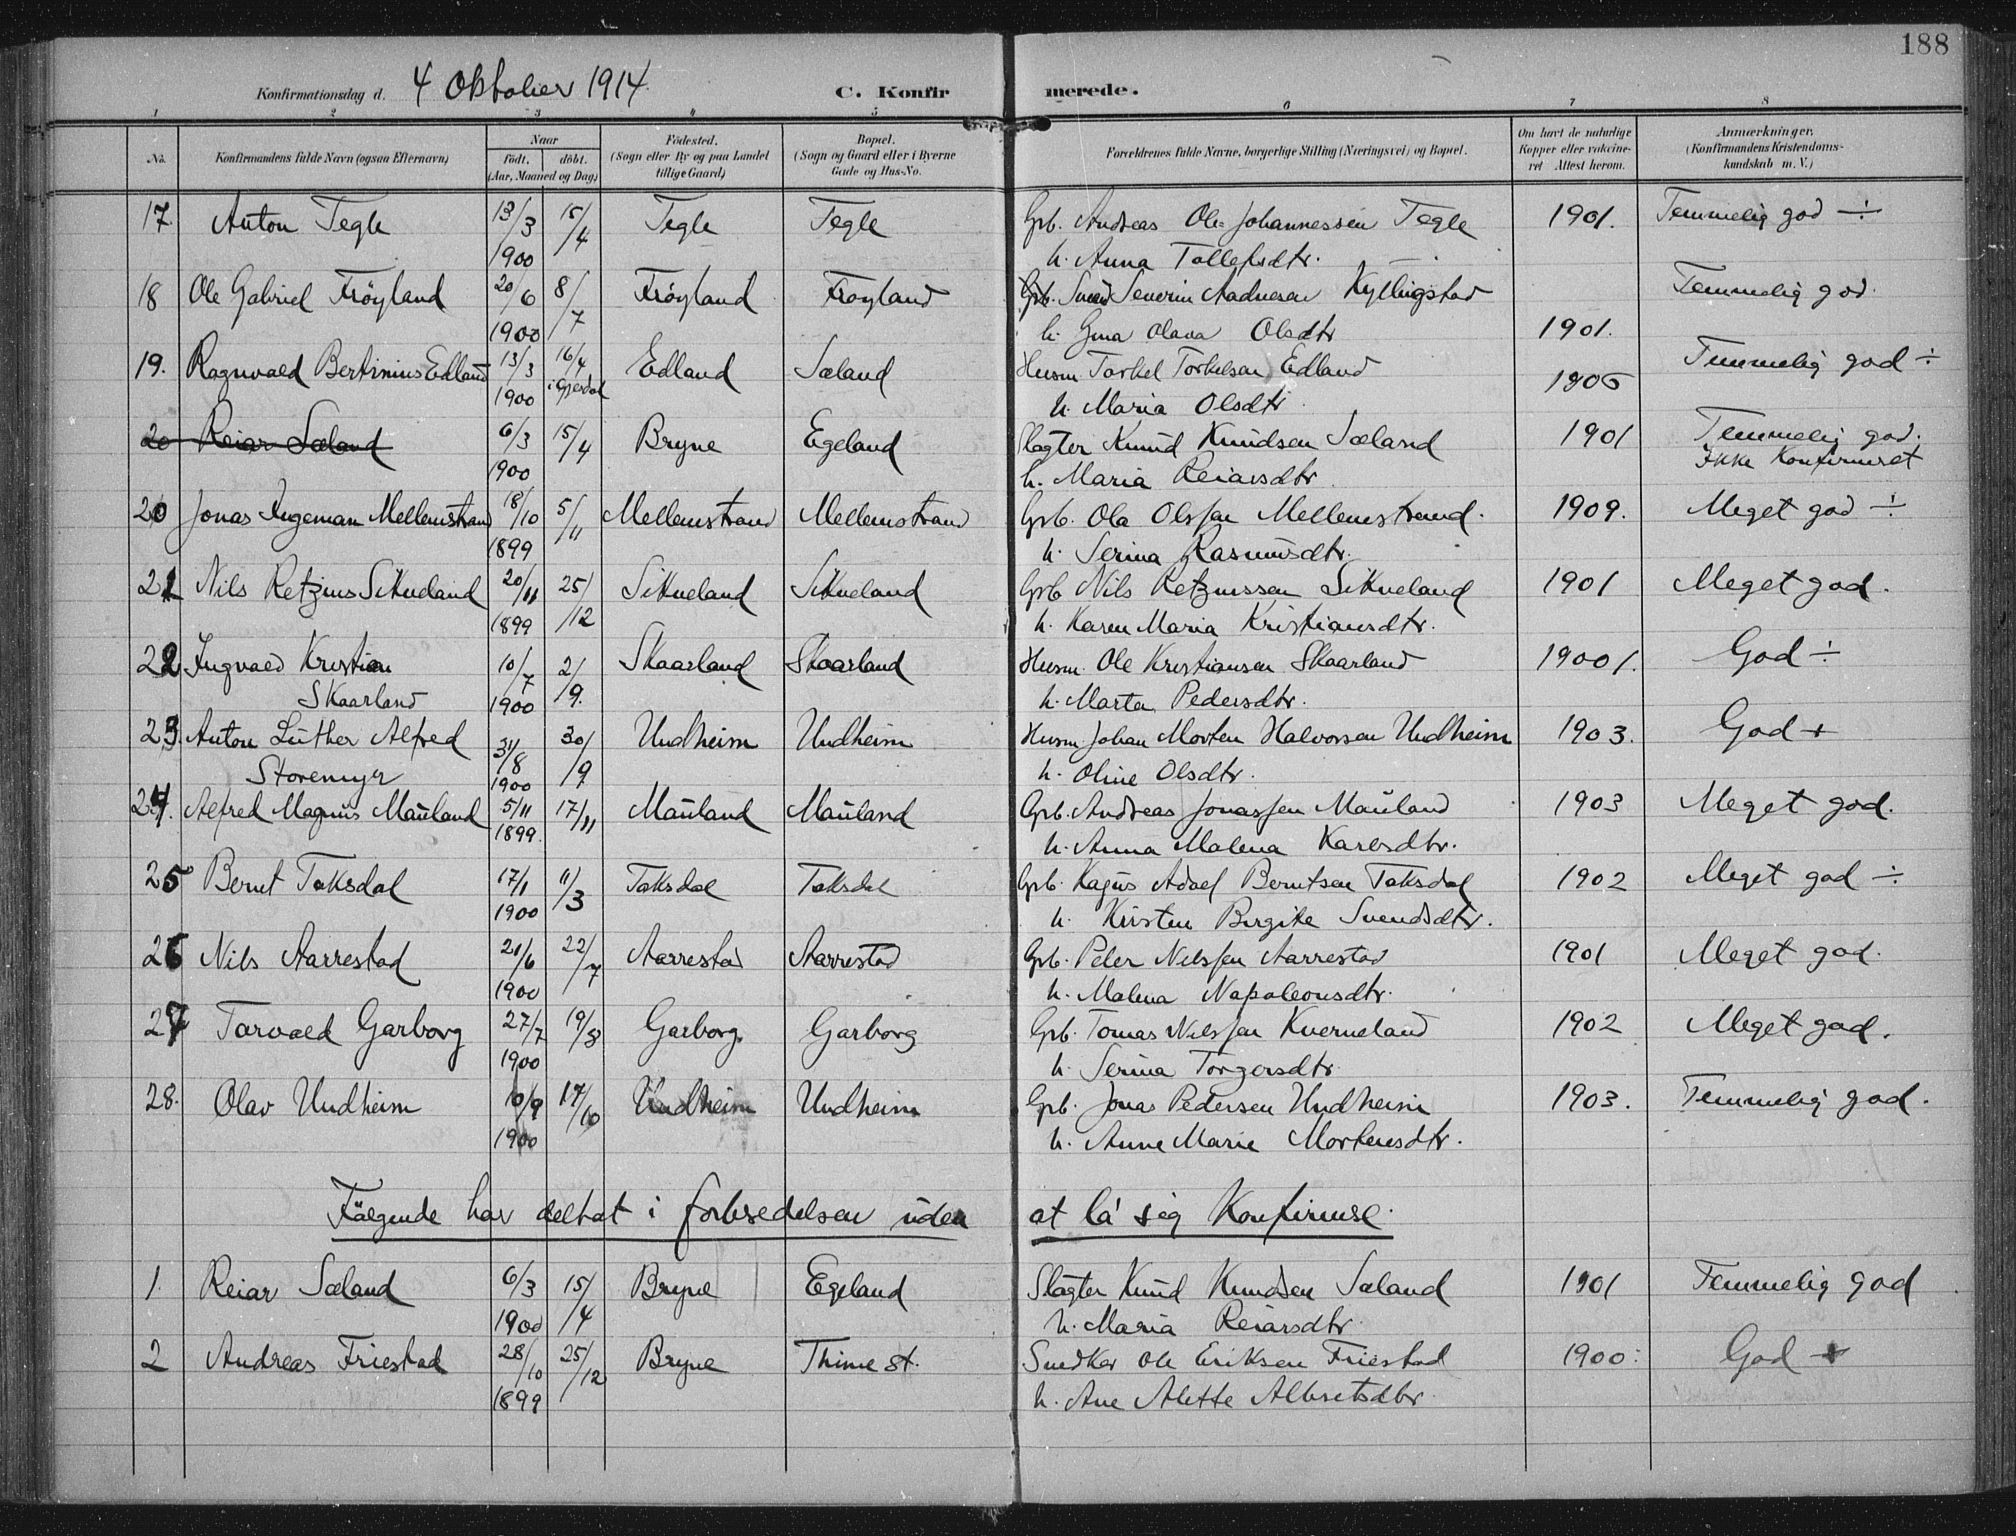 188
Konfirmationsdag d. 4 Oktober 1914. C. Konfirmerede.
1 2 3 4 5 6 7 8
No. Konfirmandens fulde Navn (ogsaa Efternavn) Naar födt. döbt. (Aar, Maaned og Dag) Födested. (Sogn eller By og paa Landet tillige Gaard) Bopæl. (Sogn og Gaard eller i Byerne Gade og Hus-No. Forældrenes fulde Navne, borgerlige Stilling (Næringsvei) og Bopæl. Om havt de naturlige Kopper eller vaccineret Attest herom. Anmærkninger. (Konfirmandens Kristendomskundskab m. V.)
17. Anton Tegle 13/3 15/4 Tegle Tegle Grb. Andreas Ole Johannessen Tegle 1901. Temmelig god ÷
1900 h. Anna Tollefsdtr.
18 Ole Gabriel Fröyland 20/6 8/7 Fröyland Fröyland Grb. Svend Severin Aadnesen Kyllingstad Temmelig god.
1900 h. Gina Olava Olsdtr 1901.
19. Ragnvald Bertinius Edland 13/3 16/4 Edland Sæland Husm Torkel Torkelsen Edland Temmelig god ÷
1900 i Gjesdal h. Maria Olsdtr. 1906
20 Reiar Sæland 6/3 15/4 Bryne Egeland Slagter Knud Knudsen Sæland 1901 Temmelig god.
1900 h. Maria Reiarsdtr Ikke Konfirmeret
20 Jonas Ingeman Mellemstrand 18/10 5/11 Mellemstrand Mellemstrand Grb. Ola Olssen Mellemstrand. 1909. Meget god ÷
1899 h. Serina Rasmusdtr.
21 Nils Retzius Sikveland 20/11 25/12 Sikveland Sikveland Grb Nils Retziussen Sikveland 1901 Meget god.
1899 h. Karen Maria Kristiansdtr.
22 Ingvald Kristian 10/7 2/9. Skaarland Skaarland Husm. Ole Kristiansen Skaarland 1900/. God ÷
Skaarland 1900 h. Marta Pedersdtr.
23. Anton Luther Alfred 31/8 30/9 Undheim Undheim Husm. Johan Morten Halvorsen Undheim 1903. God +
Storemyr 1900 h. Oline Olsdtr.
24. Alfred Magnus Mauland 5/11 17/11 Mauland Mauland Grb. Andreas Jonassen Mauland 1903 Meget god.
1899. h. Anna Malena Karlsdtr.
25 Bernt Taksdal 17/1 11/3 Taksdal Taksdal Grb. Magus Adolf Berntsen Taksdal 1902 Meget god ÷
1900 h. Kristen Birgite Svendsdtr.
26 Nils Aarrestad 21/6 22/7 Aarrestad Aarrestad Grb. Peder Nilssen Aarrestad 1901 Meget god.
1900 h. Malena Napoleonsdtr.
27 Torvald Garborg 27/7 19/8 Garborg. Garborg Grb. Tomas Nilssen Kverneland 1902 Meget god.
1900 h. Serina Torgersdtr.
28. Olav Undheim 10/9 17/10 Undheim Undheim Grb. Jonas Pedersen Undheim 1903. Temmelig god.
1900 h. Anne Marie Mortensdtr.
Fölgende har deltat i forberedelsen uden at la sig Konfirmere.
1. Reiar Sæland 6/3 15/4 Bryne Egeland Slagter Knud Knudsen Sæland 1901 Temmelig god
1900 h. Maria Reiarsdtr
2 Andreas Friestad 28/10 25/12 Bryne Thime st. Snedker Ole Eriksen Friestad 1900. God +
1899 h. Ane Alette Albretsdtr.